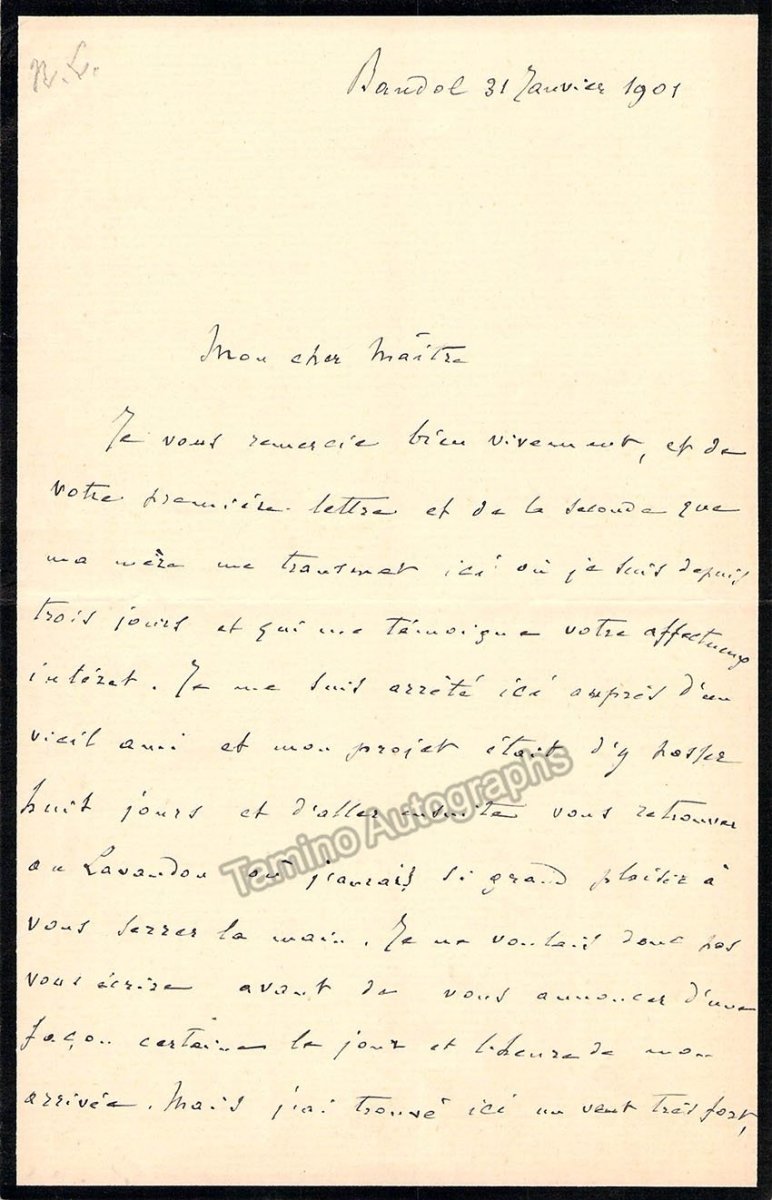 R. L.
Bandol 31 Janvier 1901
Mon cher Maître
Je vous remercie bien vivement, et de
votre première lettre et de la seconde que
ma mère me transmet ici où je suis depuis
trois jours et qui me témoigne votre affectueux
intéret. Je me suis arrêté ici auprès d'un
vieil ami et mon projet était d'y passer
huit jours et d'aller ensuite vous retrouver
au Lavandou où j'aurais si grand plaisir à
vous serrer la main. Je ne voulais donc pas
vous écrire avant de vous annoncer d'une
façon certaine le jour et l'heure de mon
arrivée. Mais j'ai trouvé ici un vent très fort,
Tamino Autographs